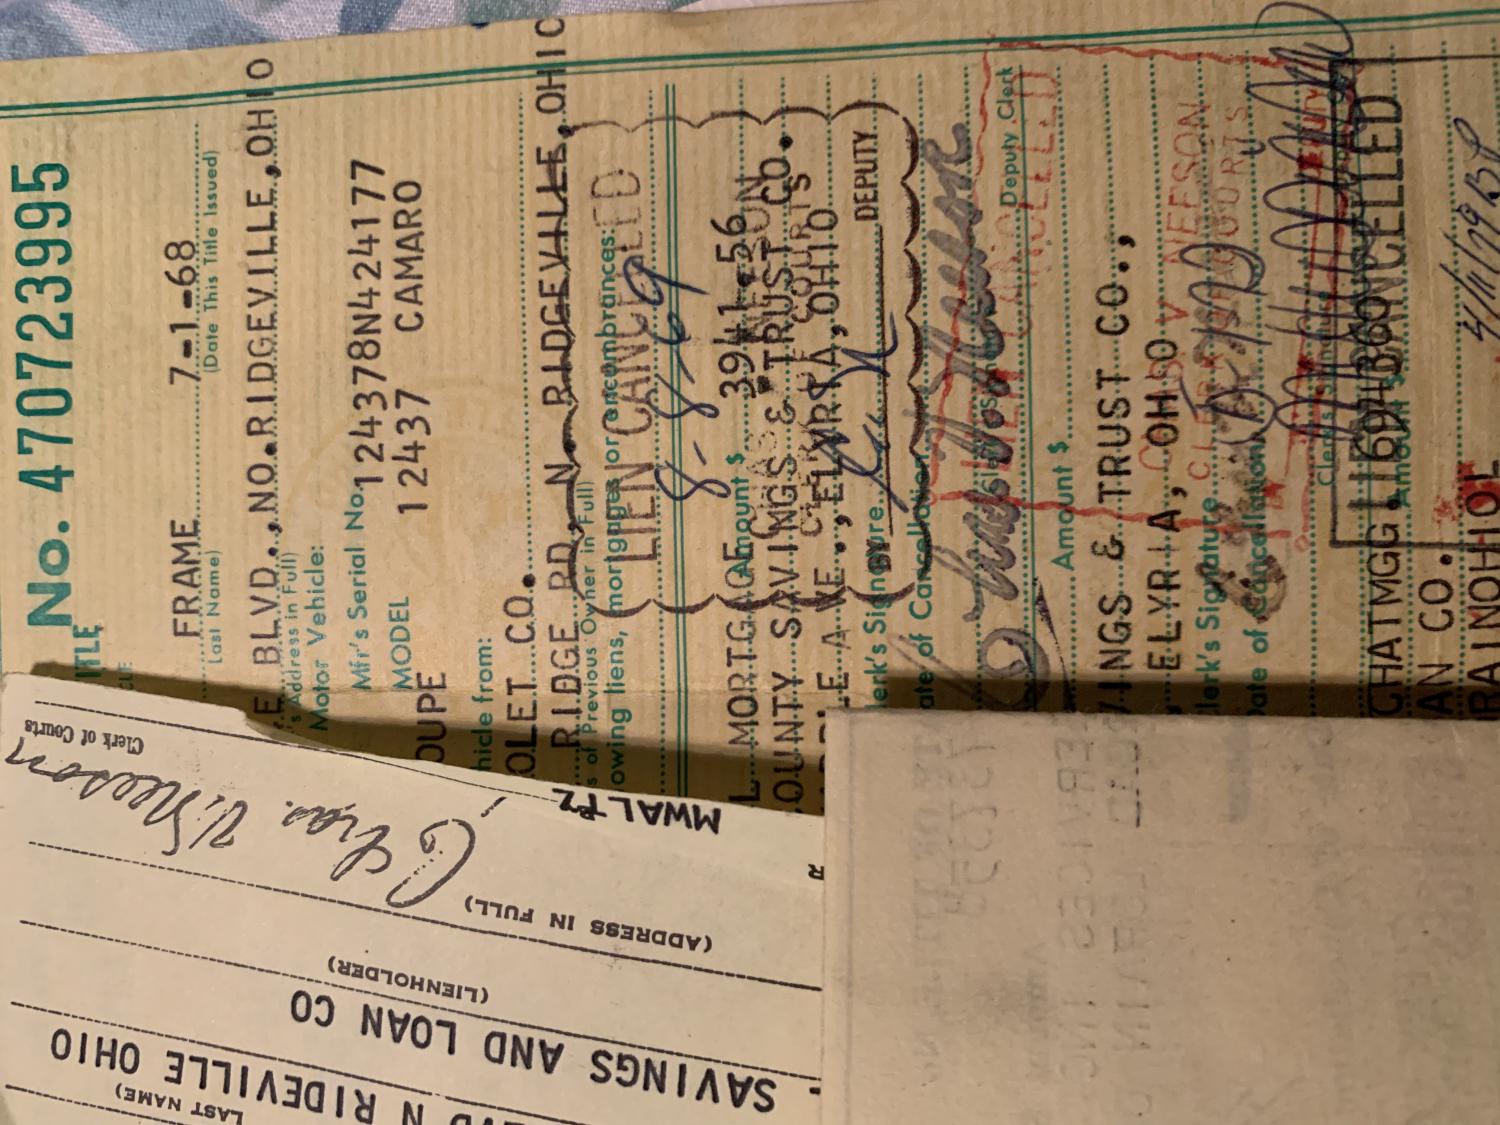 No. 470723995
TITLE
FRAME 7-1-68
(Last Name) (Date This Title Issued)
E BLVD.,NO.RIDGEVILLE,OHIO
s Address in Full)
Motor Vehicle:
Mfr's Serial No. 124378N424177
MODEL 12437 CAMARO
OUPE
hicle from:
OLET CO.
RIDGE RD, N. RIDGEVILLE,OHIO
s of Previous Owner in Full)
owing liens, mortgages or encumbrances:
LIEN CANCELLED
8-8-69
L MORTGAGE Amount $ 3941.56
OUNTY SAVINGS & TRUST CO.
AVE., ELYRIA,OHIO
CLERK OF COURTS
lerk's Signature
BY DEPUTY
ate of Cancellation
Deputy Clerk
LIEN CANCELLED
Amount $
VINGS & TRUST CO.,
ELYRIA, OHIO
CHAS V NEESON
CLERK OF COURTS
lerk's Signature
Date of Cancellation
Deputy
CHATMGG 1694.60
LIEN CANCELLED
Amount $
AN CO.
4/11/79
Clerk of Courts
Chas. V. Neeson
MWALTZ
R
(ADDRESS IN FULL)
(LIENHOLDER)
SAVINGS AND LOAN CO
LVD N RIDEVILLE OHIO
LAST NAME)